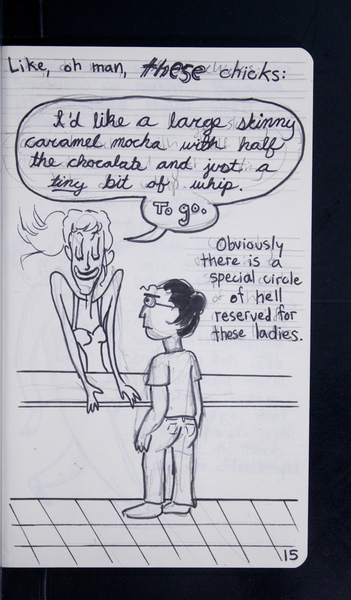 Like, oh man, these chicks:
I'd like a large skinny
caramel mocha with half
the chocolate and just a
tiny bit of whip.
To go.
Obviously
there is a
special circle
of hell
reserved for
these ladies.
15